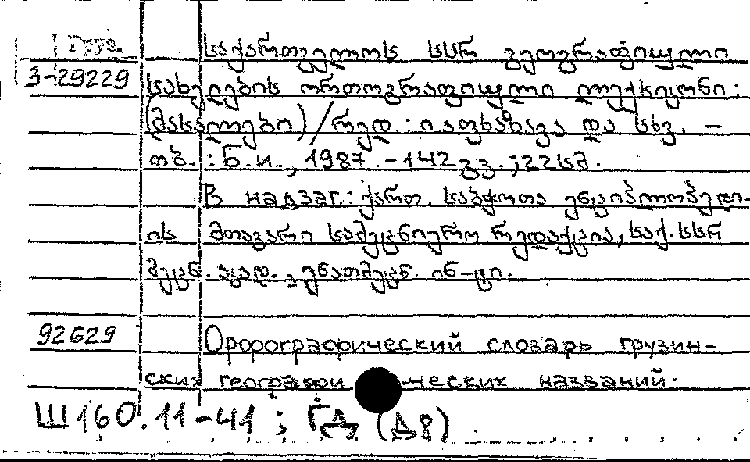 Груз.
საქართველოს სსრ გეოგრაფიული
3-29229 სახელების ორთოგრაფიული ლექსიკონი:
(მასალები) / რედ.: ი. აფხაზავა და სხვ. –
თბ.: ნ. ი., 1987. – 142 გვ.; 22 სმ.
В надзаг.: ქართ. საბჭოთა ენციკლოპედი-
ის მთავარი სამეცნიერო რედაქცია, საქ. სსრ
მეცნ. აკად., ენათმეცნ. ინ-ტი.
92629 Орфографический словарь грузин-
ских географических названий.
Ш160.11-41; ГД (Д8)